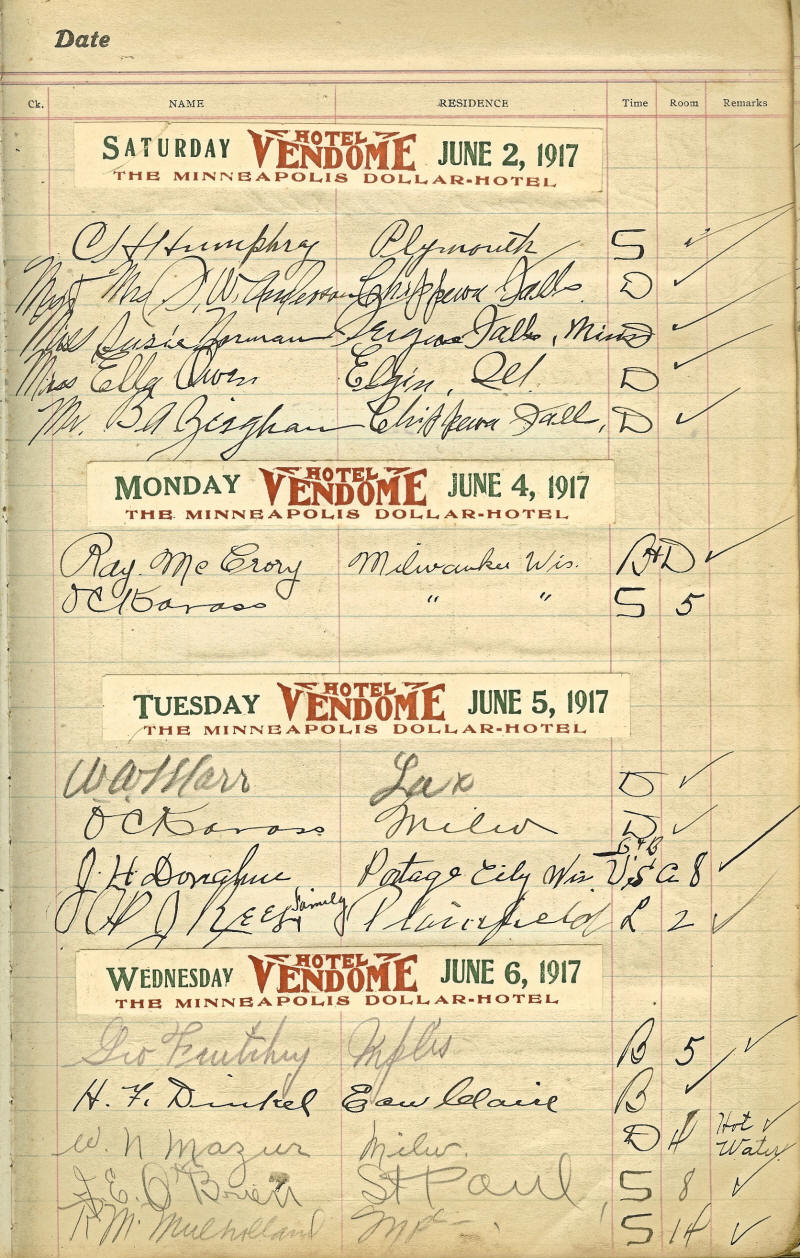 Date
Ck. NAME RESIDENCE Time Room Remarks
SATURDAY HOTEL VENDOME JUNE 2, 1917
THE MINNEAPOLIS DOLLAR-HOTEL
C H Humphrey Plymouth S ✓
Mr & Mrs S. W. Anderson Chippewa Falls D ✓
Miss Susie Norman Fergus Falls, Minn D ✓
Miss Ella Owen Elgin, Ill. D ✓
Mr. B A Bingham Chippewa Falls, D ✓
MONDAY HOTEL VENDOME JUNE 4, 1917
THE MINNEAPOLIS DOLLAR-HOTEL
Ray Mc Crory Milwaukee Wis. B+D ✓
O C Kavass " " S 5
TUESDAY HOTEL VENDOME JUNE 5, 1917
THE MINNEAPOLIS DOLLAR-HOTEL
W. A. Marr Lax D ✓
O C Kavass Milw D ✓
J. H. Donahue Portage City Wis U.S a 8 ✓
J Rees & Family Plainfield L 2 ✓
WEDNESDAY HOTEL VENDOME JUNE 6, 1917
THE MINNEAPOLIS DOLLAR-HOTEL
Geo Mpls B 5 ✓
H. F. Dinkel Eau Claire B ✓
W. N Mazur Milw. D 4 Hot Water ✓
J. E. O'Brien St Paul, S 8 ✓
R. M. Mulholland S 14 ✓